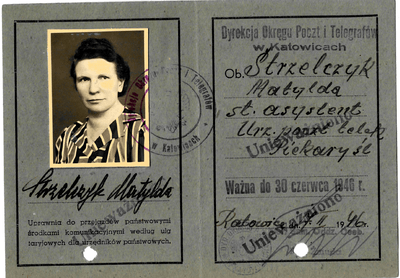 Strzelczyk Matylda
Uprawnia do przejazdów państwowymi
środkami komunikacyjnymi według ulg
taryfowych dla urzędników państwowych.
Unieważniono
Dyrekcja Okręgu Poczt i Telegrafów
w Katowicach
Ob. Strzelczyk
Matylda
st. asystent
Urz. poczt telek
Piekary Śl
Unieważniono
Ważna do 30 czerwca 1946 r.
Katowice 1946
Unieważniono
i Telegrafów
w Katowicach